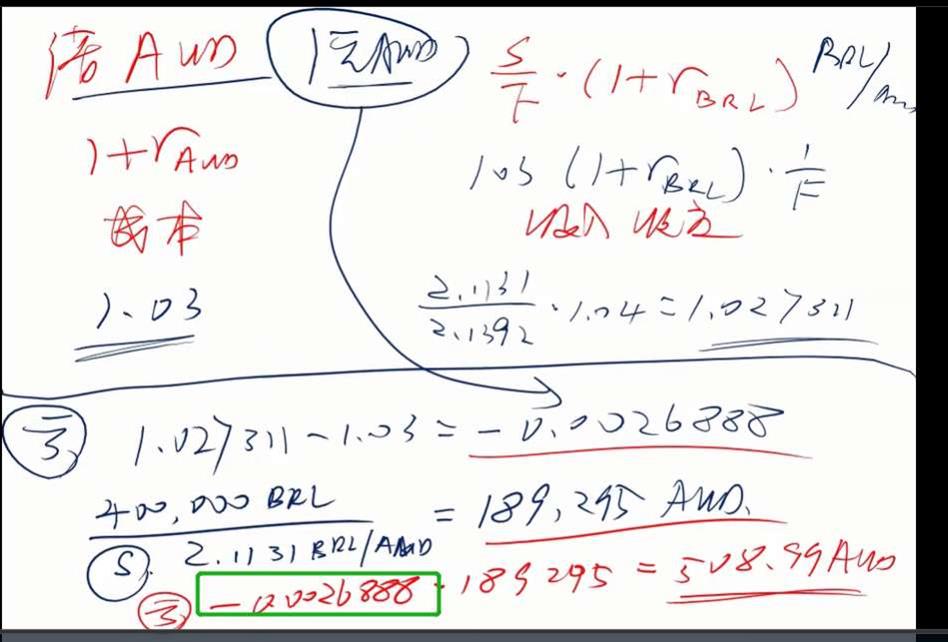 借AUD
1元AUD
S/F · (1+r_BRL) BRL/AUD
1+r_AUD
成本
103 (1+r_BRL) · 1/F
收入 收益
1.03
2.1131/2.1392 · 1.04 = 1.027311
亏 1.027311 - 1.03 = -0.0026888
400,000 BRL / 2.1131 BRL/AUD = 189,295 AUD.
S.
亏 -0.0026888 · 189295 = 508.99 AUD